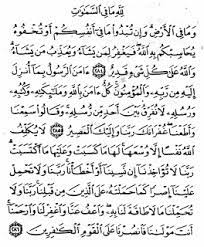 لِّلَّهِ مَا فِى ٱلسَّمَٰوَٰتِ
وَمَا فِى ٱلْأَرْضِ وَإِن تُبْدُوا۟ مَا فِىٓ أَنفُسِكُمْ أَوْ تُخْفُوهُ
يُحَاسِبْكُم بِهِ ٱللَّهُ فَيَغْفِرُ لِمَن يَشَآءُ وَيُعَذِّبُ مَن يَشَآءُ
وَٱللَّهُ عَلَىٰ كُلِّ شَىْءٍ قَدِيرٌ ٢٨٤ ءَامَنَ ٱلرَّسُولُ بِمَآ أُنزِلَ
إِلَيْهِ مِن رَّبِّهِۦ وَٱلْمُؤْمِنُونَ كُلٌّ ءَامَنَ بِٱللَّهِ وَمَلَٰٓئِكَتِهِۦ وَكُتُبِهِۦ
وَرُسُلِهِۦ لَا نُفَرِّقُ بَيْنَ أَحَدٍ مِّن رُّسُلِهِۦ وَقَالُوا۟ سَمِعْنَا
وَأَطَعْنَا غُفْرَانَكَ رَبَّنَا وَإِلَيْكَ ٱلْمَصِيرُ ٢٨٥ لَا يُكَلِّفُ
ٱللَّهُ نَفْسًا إِلَّا وُسْعَهَا لَهَا مَا كَسَبَتْ وَعَلَيْهَا مَا ٱكْتَسَبَتْ
رَبَّنَا لَا تُؤَاخِذْنَآ إِن نَّسِينَآ أَوْ أَخْطَأْنَا رَبَّنَا وَلَا تَحْمِلْ
عَلَيْنَآ إِصْرًا كَمَا حَمَلْتَهُۥ عَلَى ٱلَّذِينَ مِن قَبْلِنَا رَبَّنَا وَلَا
تُحَمِّلْنَا مَا لَا طَاقَةَ لَنَا بِهِۦ وَٱعْفُ عَنَّا وَٱغْفِرْ لَنَا وَٱرْحَمْنَآ
أَنتَ مَوْلَىٰنَا فَٱنصُرْنَا عَلَى ٱلْقَوْمِ ٱلْكَٰفِرِينَ ٢٨٦